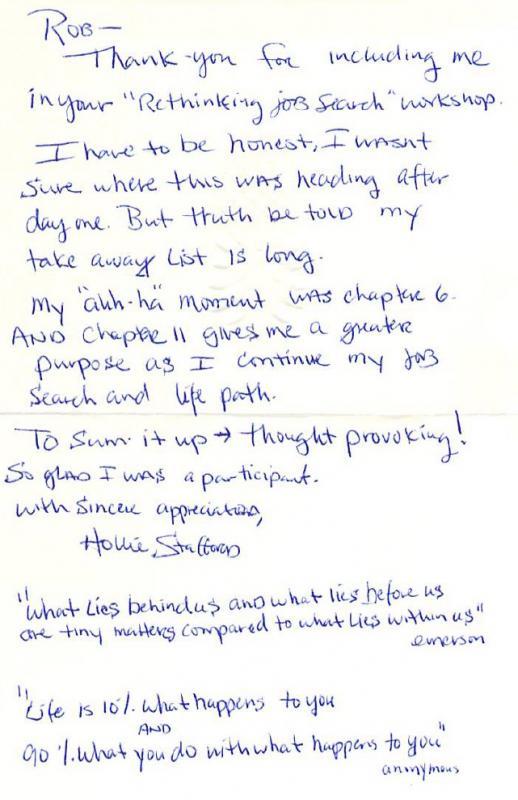 Rob—
Thank-you for including me
in your "Rethinking job search" workshop.
I have to be honest, I wasn't
sure where this was heading after
day one. But truth be told my
take away list is long.
my "ahh-ha" moment was chapter 6.
AND Chapter 11 gives me a greater
purpose as I continue my job
search and life path.
To sum it up → thought provoking!
So glad I was a participant.
with sincere appreciation,
Hollie Stafford
"What lies behind us and what lies before us
are tiny matters compared to what lies within us"
emerson
"Life is 10%. what happens to you
AND
90%. what you do with what happens to you"
anonymous